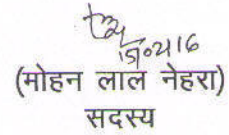 15/02/16
(मोहन लाल नेहरा)
सदस्य